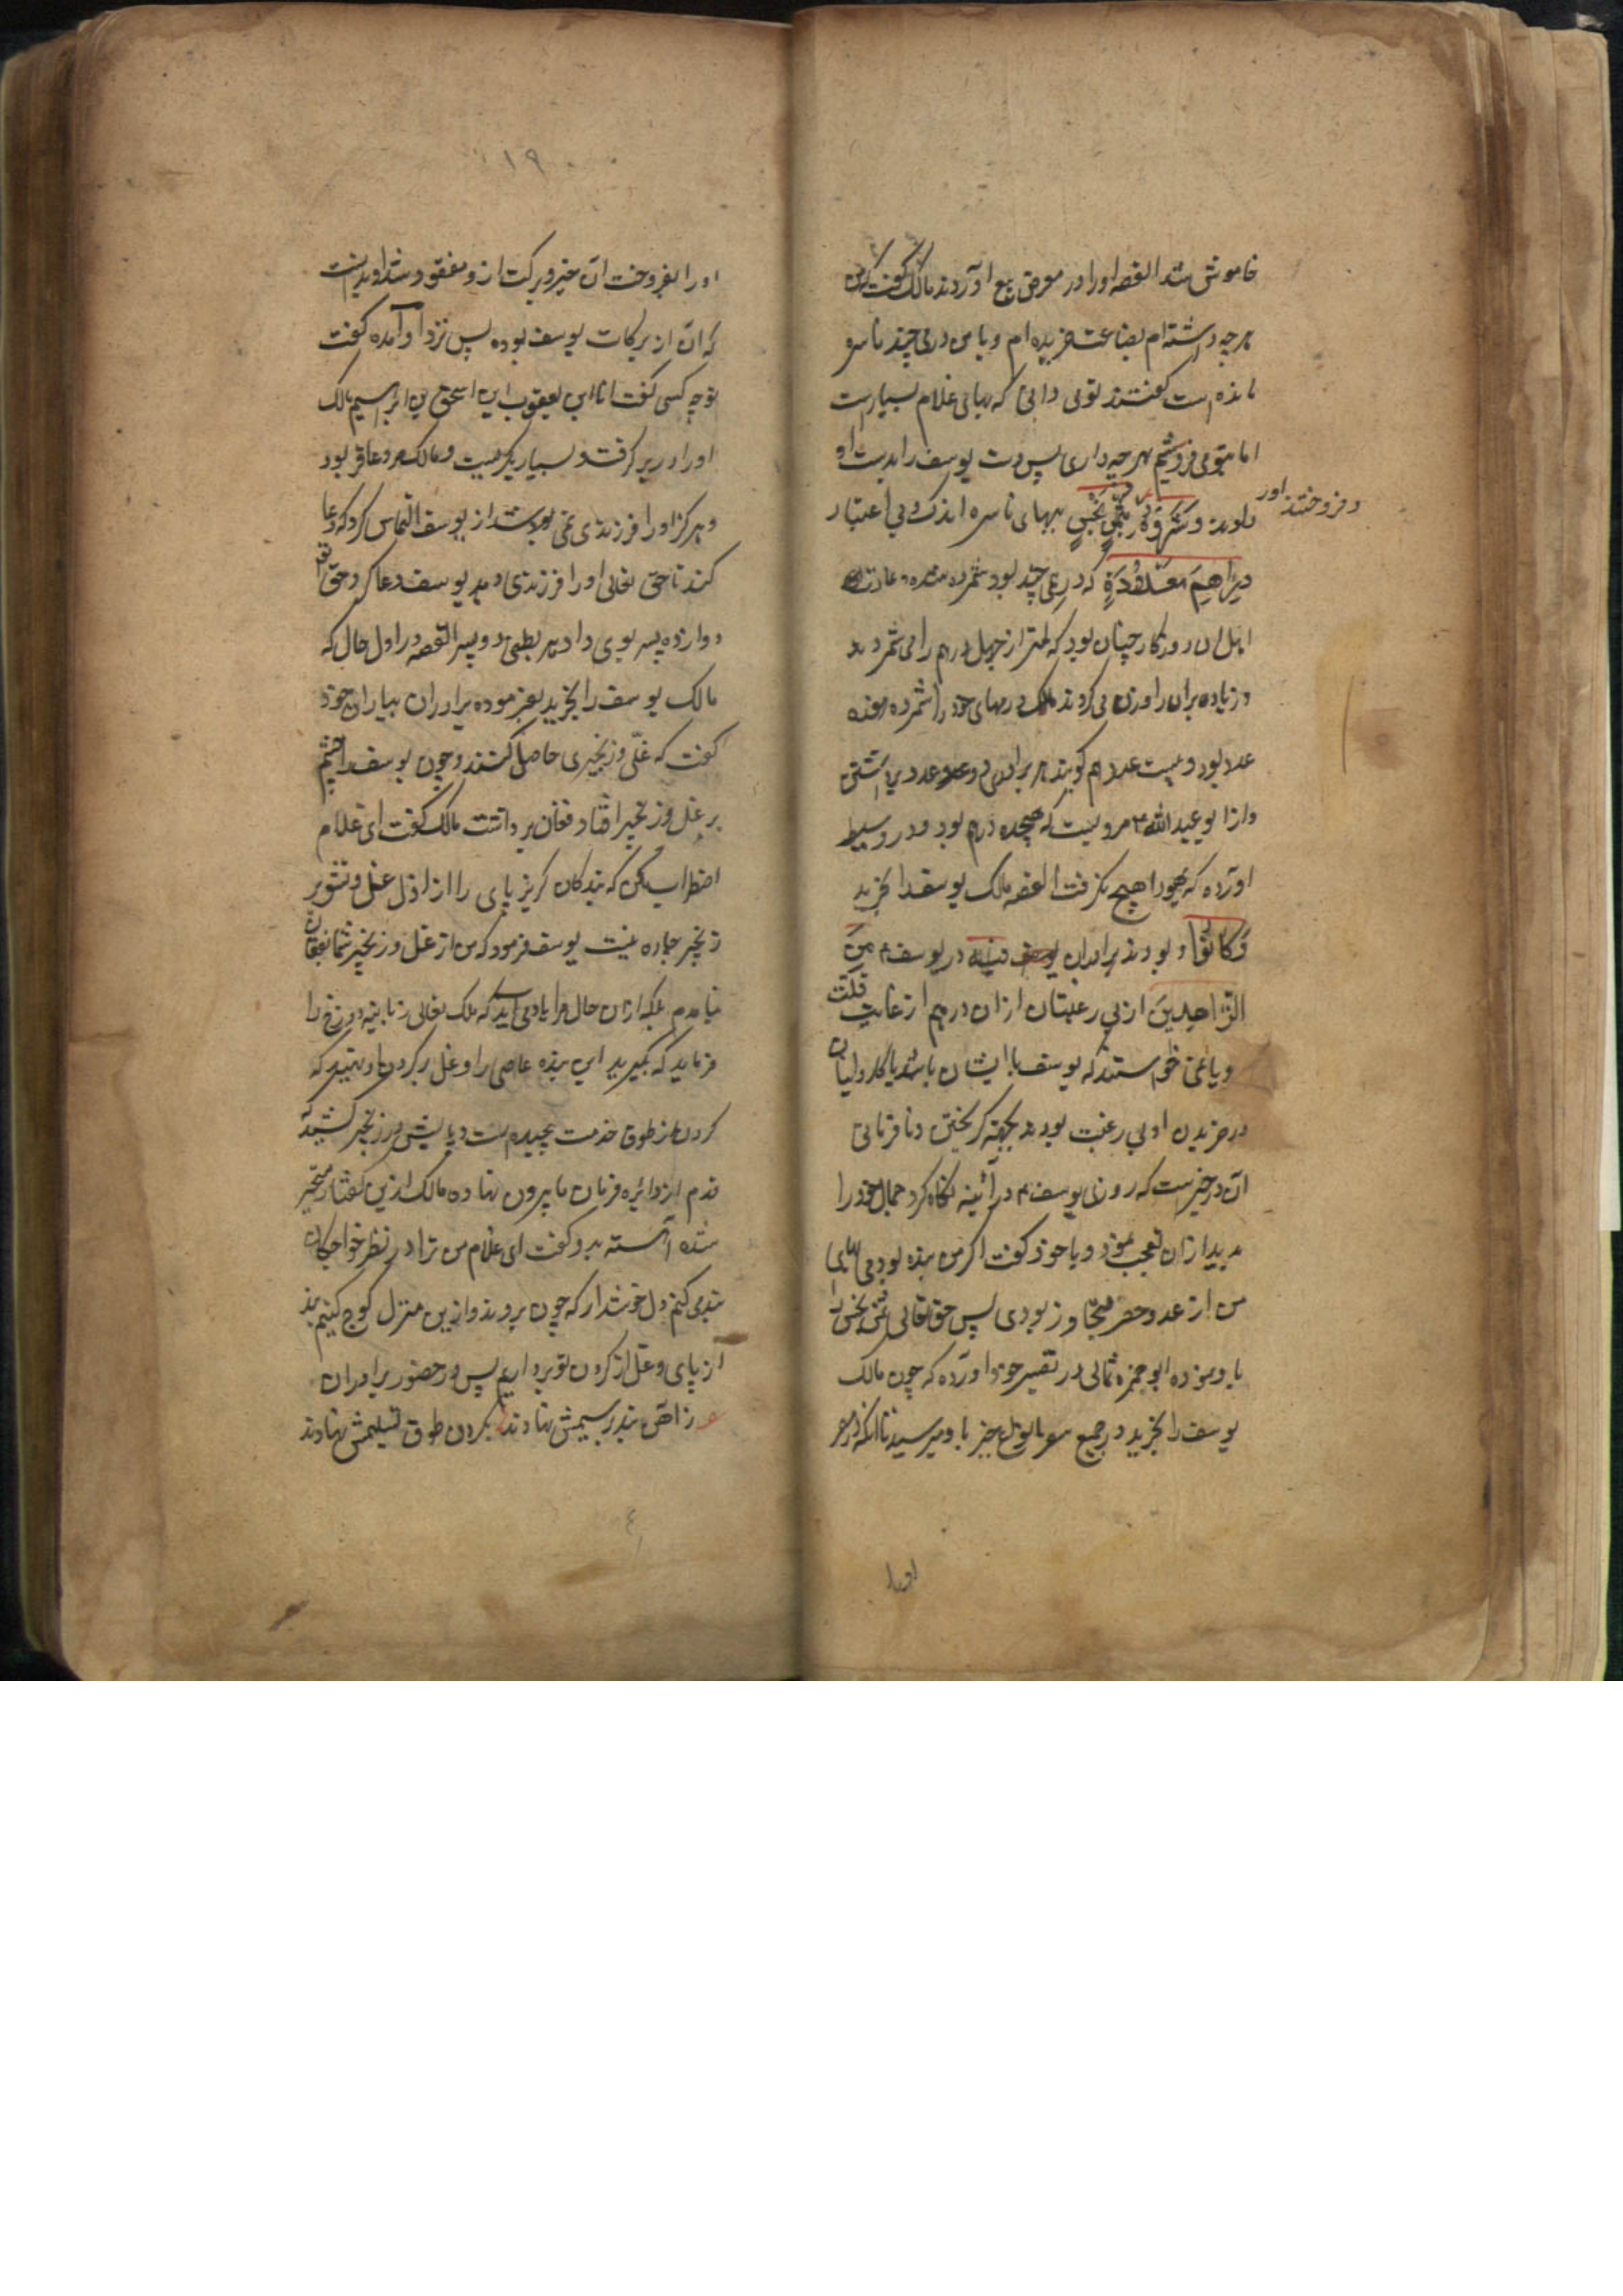 خاموش شد القصه اورا در معرض بیع اوردند مالک گفت من
هرچه داشته ام بضاعت خریده ام و با من درمی چند ناسره
مانده است گفتند تو می دانی که بهای غلام بسیارست
اما بتو می فروشیم بهرچه داری پس دست یوسف را بدست او
دادند وَشَرَوْهُ و فروختند اورا بِثَمَنٍ بَخْسٍ ببهای ناسره اندک و بی اعتبار
دَرَاهِمَ مَعْدُودَةٍ که درمی چند بود شمرده شده و عادت
اهل ان روزکار چنان بود که کمتر از چهل درم را می شمردند
و زیاده بران را وزن می کردند مالک درمهای خود را شمرده
عدد بود و بیست عدد هم کویند هر برادری دو عدد برداشتی
و از ابو عبید الله مرویست که هجده درم بود و در وسیط
اورده که یهودا هیچ نکرفت القصه مالک یوسف را بخرید
وَكَانُوا و بودند برادران یوسف فِيهِ در یوسف مِنَ
الزَّاهِدِينَ از بی رغبتان ازان درهم از غایت قلت
و یا نمی خواستند که یوسف با ایشان باشد یا کاروانیان
در خریدن او بی رغبت بودند بجهة کریختن و نافرمانی
آن در خبرست که روزی یوسف در آئینه نکاه کرد جمال خود را
بدید ازان تعجب نمود و با خود گفت اکر من بنده بودمی بهای
من از عدد و حصر متجاوز بودی پس حق تعالی ثمن بخس را
باو نموده ابو حمزه ثمالی در تفسیر خود اورده که چون مالک
یوسف را بخرید در جمیع خیر باو میرسید تا انکه در مصر
اورا
١٩
اورا بفروخت آن خیر و برکت ازو مفقود شد او بدانست
که آن از برکات یوسف بوده پس نزد او آمده گفت
تو چه کسی گفت انا ابن یعقوب ابن اسحق بن ابراهیم مالک
اورا در بر کرفت و بسیار بکریست و مالک مرد عاقر بود
و هرکز اورا فرزندی نمی شد از یوسف التماس کرد که دعا
کند تا حق تعالی اورا فرزندی دهد یوسف دعا کرد حق تعالی
دوازده پسر بوی داد هر بطنی دو پسر القصه در اول حال که
مالک یوسف را بخرید بفرموده برادران بیاران خود
گفت که غلی و زنجیری حاصل کنند و چون یوسف را چشم
بر غل و زنجیر افتاد فغان برداشت مالک گفت ای غلام
اضطراب مکن که بندکان کریزپای را از غل و
زنجیر چاره نیست یوسف فرمود که من از غل و زنجیر شما بفغان
نیامدم بلکه ازان حال مرا یاد می آید که ملک تعالی زبانیه دوزخ را
فرماید که بکیرید این بنده عاصی را و غل بر کردن او نهید که
کردن از طوق خدمت پیچیده است و پایش در زنجیر کشید که
قدم از دائره فرمان ما بیرون نهاده مالک ازین گفتار متحیر
شده آهسته بدو گفت ای غلام من ترا در نظر خواجکان
بند می کنم دل خوش دار که چون بروند و ازین منزل کوچ کنیم بند
از پای و غل از کردن تو برداریم پس در حضور برادران
از آهن بند بر سیمش نهادند بکردن طوق تسلیمش نهادند
٤